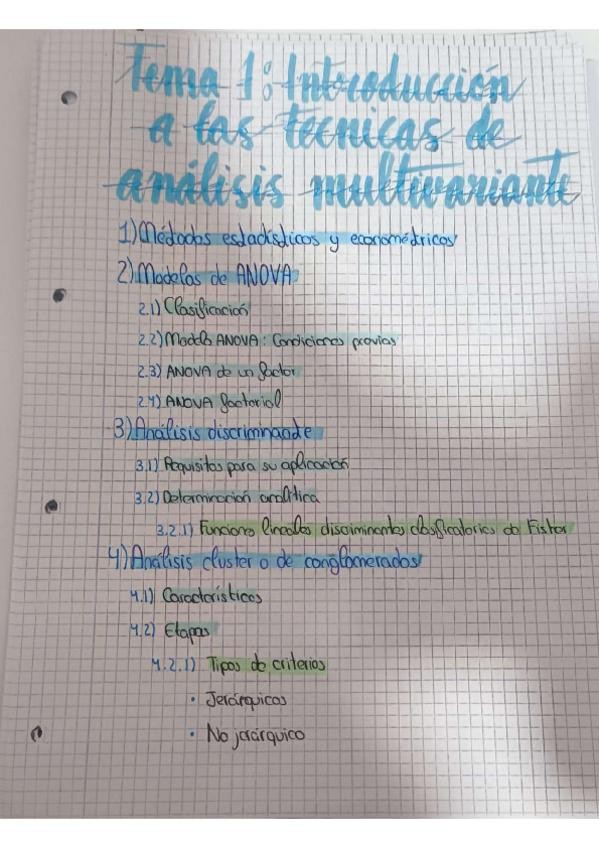 Tema 1: Introducción
a las técnicas de
análisis multivariante
1) Métodos estadísticos y econométricos
2) Modelos de ANOVA
2.1) Clasificación
2.2) Modelos ANOVA: Condiciones previas
2.3) ANOVA de un factor
2.4) ANOVA factorial
3) Análisis discriminante
3.1) Requisitos para su aplicación
3.2) Determinación analítica
3.2.1) Funciones lineales discriminantes clasificatorias de Fisher
4) Análisis cluster o de conglomerados
4.1) Características
4.2) Etapas
4.2.1) Tipos de criterios
• Jerárquicos
• No jerárquico